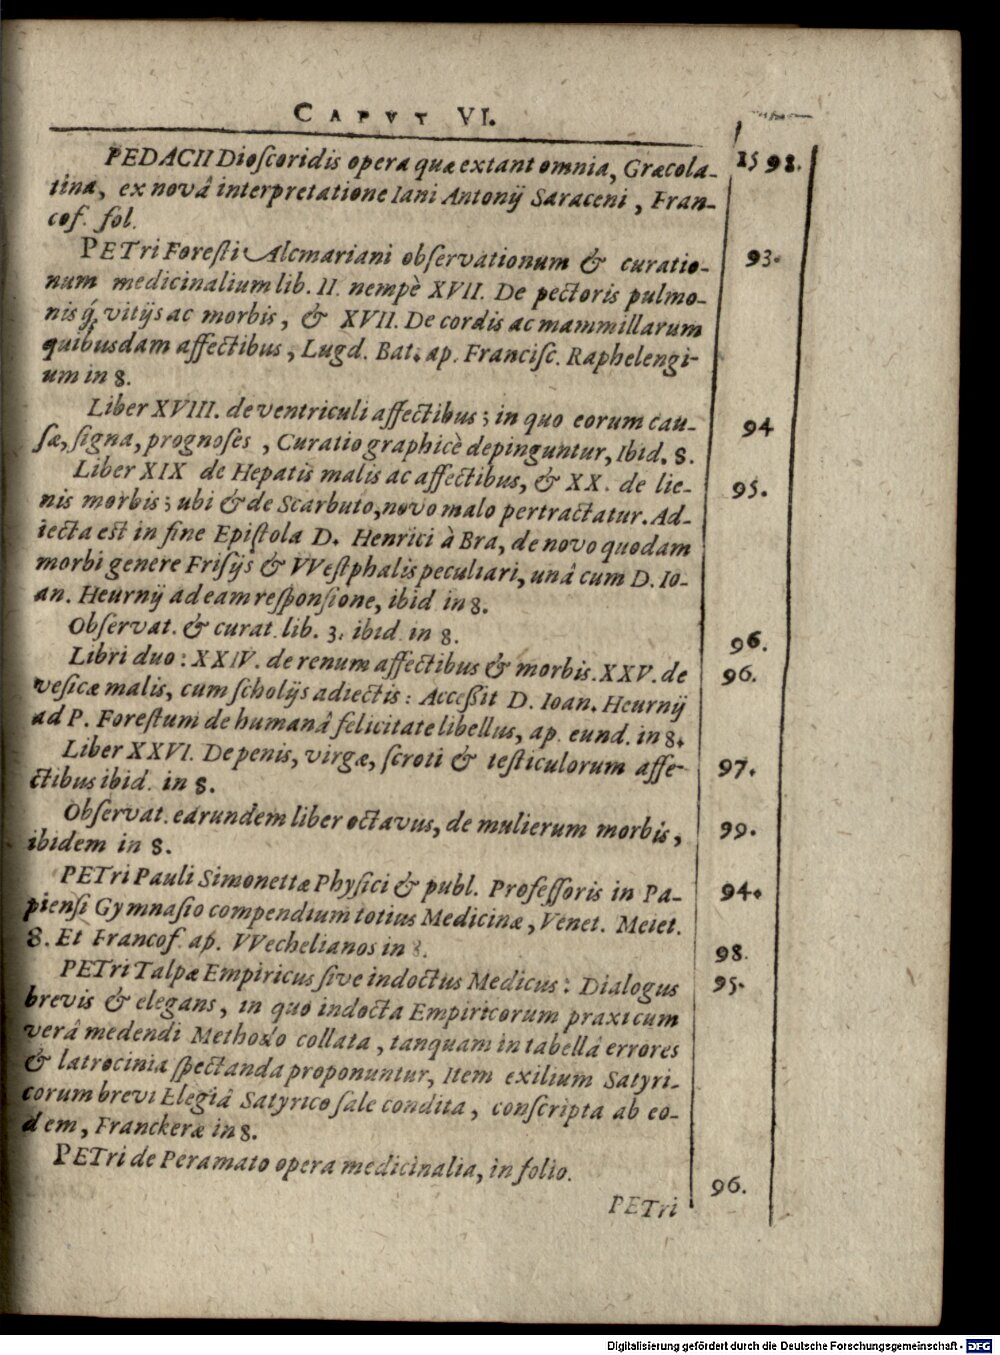 CAPVT VI.
PEDACII Dioſcoridis opera quæ extant omnia, Græcola- 1598.
tina, ex novâ interpretatione Iani Antonij Saraceni, Fran-
cof. fol.
PETri Foreſti Alcmariani obſervationum & curatio- 93.
num medicinalium lib. II. nempè XVII. De pectoris pulmo-
nisq́; vitijs ac morbis, & XVII. De cordis ac mammillarum
quibusdam affectibus, Lugd. Bat. ap. Franciſc. Raphelengi-
um in 8.
Liber XVIII. de ventriculi affectibus; in quo eorum cau- 94
ſæ, ſigna, prognoſes, Curatio graphicè depinguntur, Ibid. 8.
Liber XIX de Hepatis malis ac affectibus, & XX. de lie- 95.
nis morbis; ubi & de Scarbuto, novo malo pertractatur. Ad-
iecta est in fine Epiſtola D. Henrici à Bra, de novo quodam
morbi genere Friſijs & VVeſtphalis peculiari, unâ cum D. Io-
an. Heurnij ad eam reſponſione, ibid in 8.
Obſervat. & curat. lib. 3. ibid. in 8. 96.
Libri duo: XXIV. de renum affectibus & morbis. XXV. de 96.
veſicæ malis, cum ſcholijs adiectis: Acceßit D. Ioan. Heurnij
ad P. Foreſtum de humanâ felicitate libellus, ap. eund. in 8.
Liber XXVI. De penis, virgæ, ſcroti & teſticulorum affe- 97.
ctibus ibid. in 8.
Obſervat. earundem liber octavus, de mulierum morbis, 99.
ibidem in 8.
PETri Pauli Simonettæ Phyſici & publ. Profeſſoris in Pa- 94.
pienſi Gymnaſio compendium totius Medicinæ, Venet. Meiet.
8. Et Francof. ap. VVechelianos in 8. 98.
PETri Talpæ Empiricus ſive indoctus Medicus: Dialogus 95.
brevis & elegans, in quo indocta Empiricorum praxi cum
verâ medendi Methodo collata, tanquam in tabellâ errores
& latrocinia ſpectanda proponuntur, Item exilium Satyri-
corum brevi Elegiâ Satyrico ſale condita, conſcripta ab eo-
dem, Franckeræ in 8.
PETri de Peramato opera medicinalia, in folio. 96.
PETri
Digitalisierung gefördert durch die Deutsche Forschungsgemeinschaft - DFG